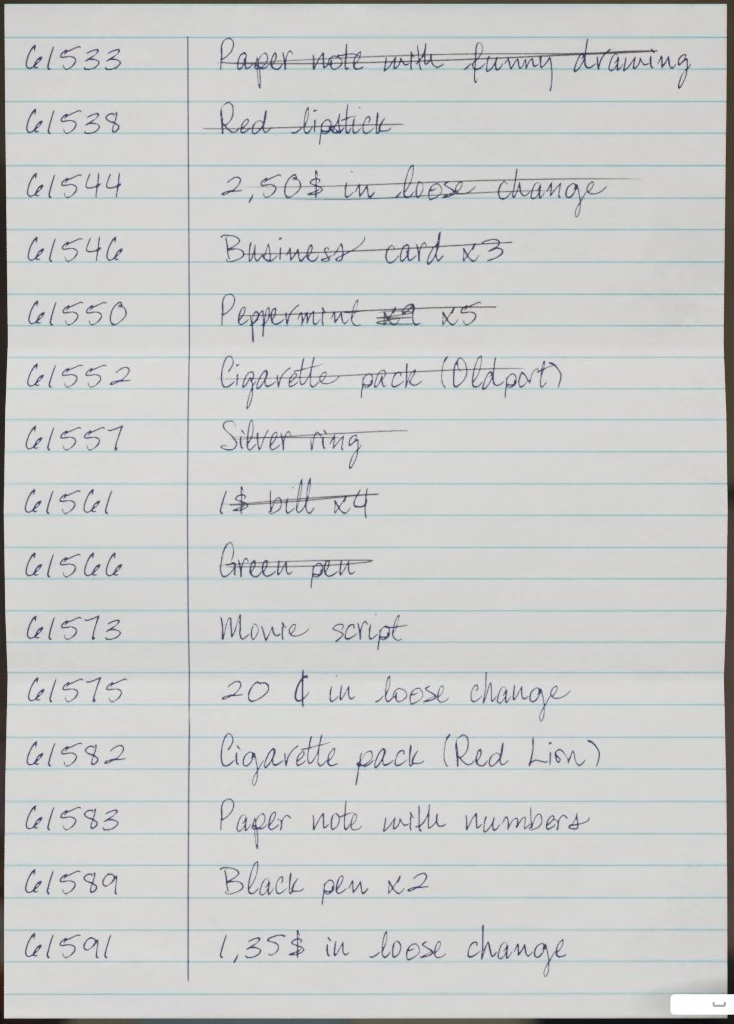 61533 Paper note with funny drawing
61538 Red lipstick
61544 2,50$ in loose change
61546 Business card x3
61550 Peppermint x5
61552 Cigarette pack (Oldport)
61557 Silver ring
61561 1$ bill x4
61566 Green pen
61573 Movie script
61575 20 ¢ in loose change
61582 Cigarette pack (Red Lion)
61583 Paper note with numbers
61589 Black pen x2
61591 1,35$ in loose change